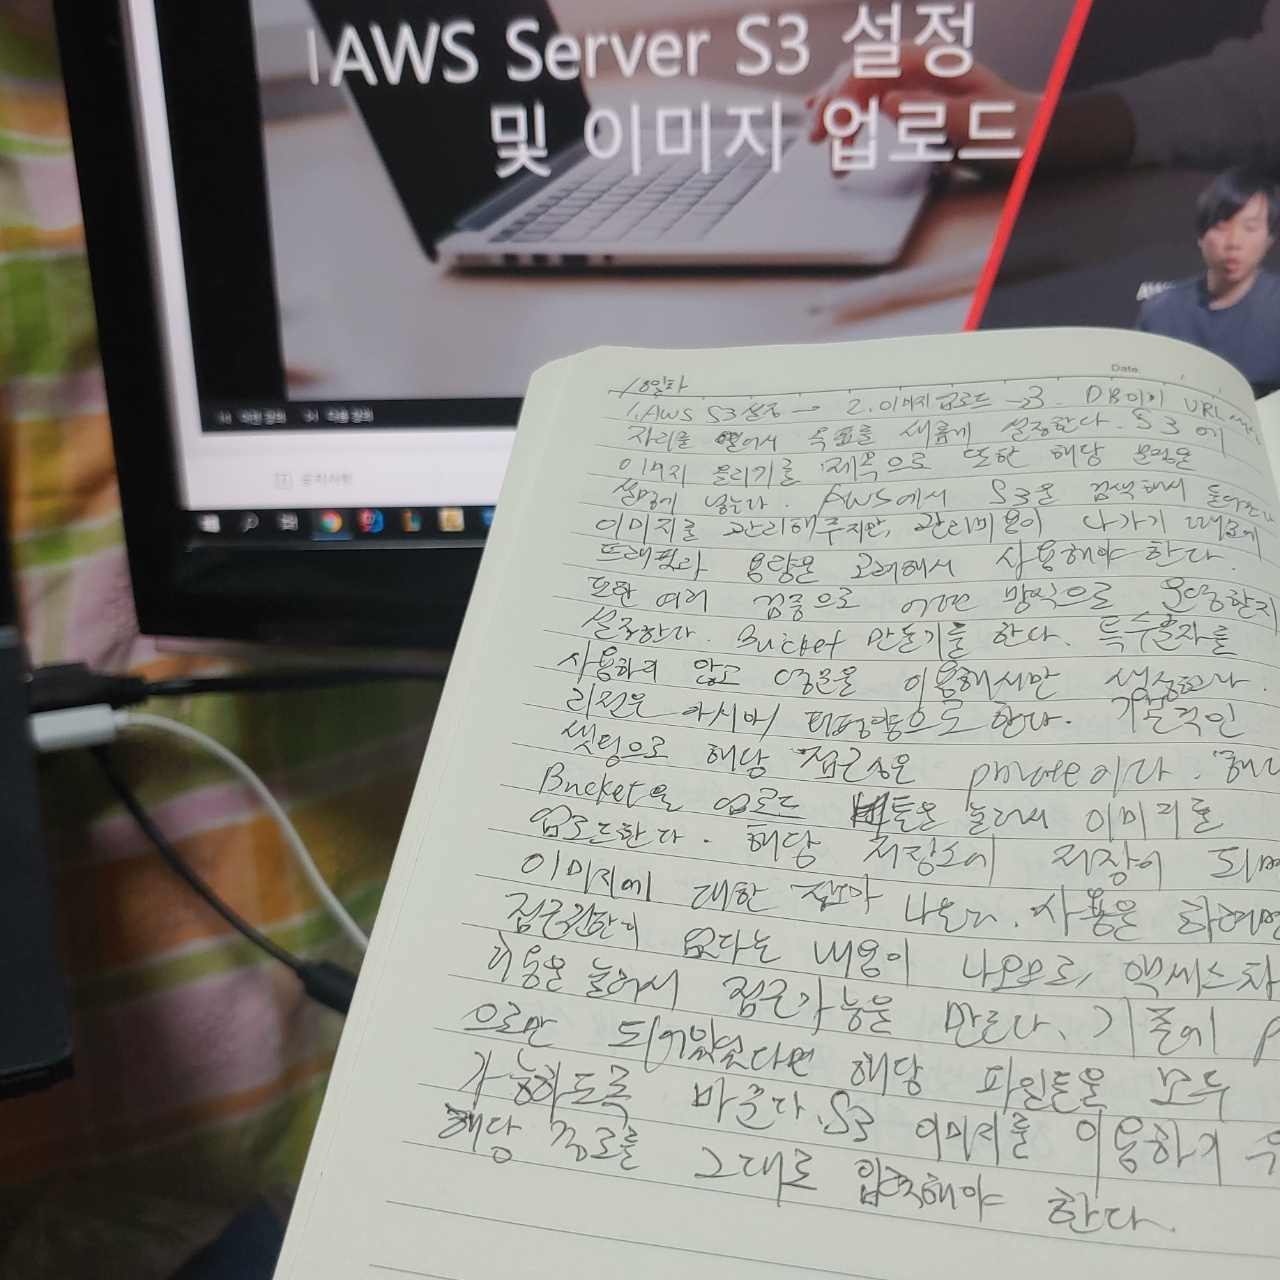 AWS Server S3 설정
및 이미지 업로드
AW
이전 강의 다음 강의
공지사항
Date.
18일차
1. AWS S3 설정 → 2. 이미지 업로드 → 3. DB에 URL
자리를 열어서 목표를 새롭게 설정한다. S3에
이미지 올리기를 제목으로 또한 해당
설명에 넣는다. AWS에서 S3을 검색해서 들어간다
이미지를 관리해주지만, 관리비용이 나가기 때문에
트래픽과 용량을 고려해서 사용해야 한다.
또한 여러 검증으로 어떤 방식으로 운영한지
설정한다. Bucket 만들기를 한다. 특수문자를
사용하지 않고 영문을 이용해서만 생성한다.
리전은 아시아/태평양으로 한다. 기본적인
셋팅으로 해당 접근성은 private이다.
Bucket을 업로드 버튼을 눌러서 이미지를
업로드한다. 해당 저장소에 저장이 되면
이미지에 대한 정보가 나온다. 사용을 하려면
접근권한이 없다는 내용이 나오므로, 액세스 차
눌러서 접근가능을 만든다. 기존에 p
으로만 되어있었다면 해당 파일들을 모두
가능하도록 바꾼다. S3 이미지를 이용하기
해당 경로를 그대로 입력해야 한다.